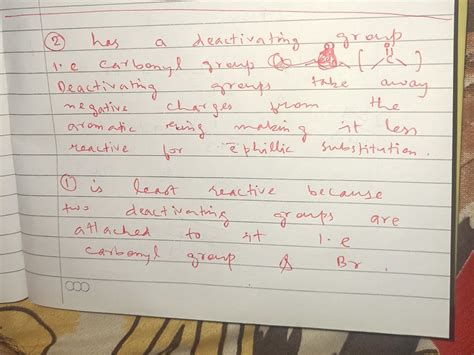 ② has a deactivating group
i.e carbonyl group ( C O )
Deactivating groups take away
negative charges from the
aromatic ring making it less
reactive for ēphillic substitution.
① is least reactive because
two deactivating groups are
attached to it i.e
carbonyl group & Br.